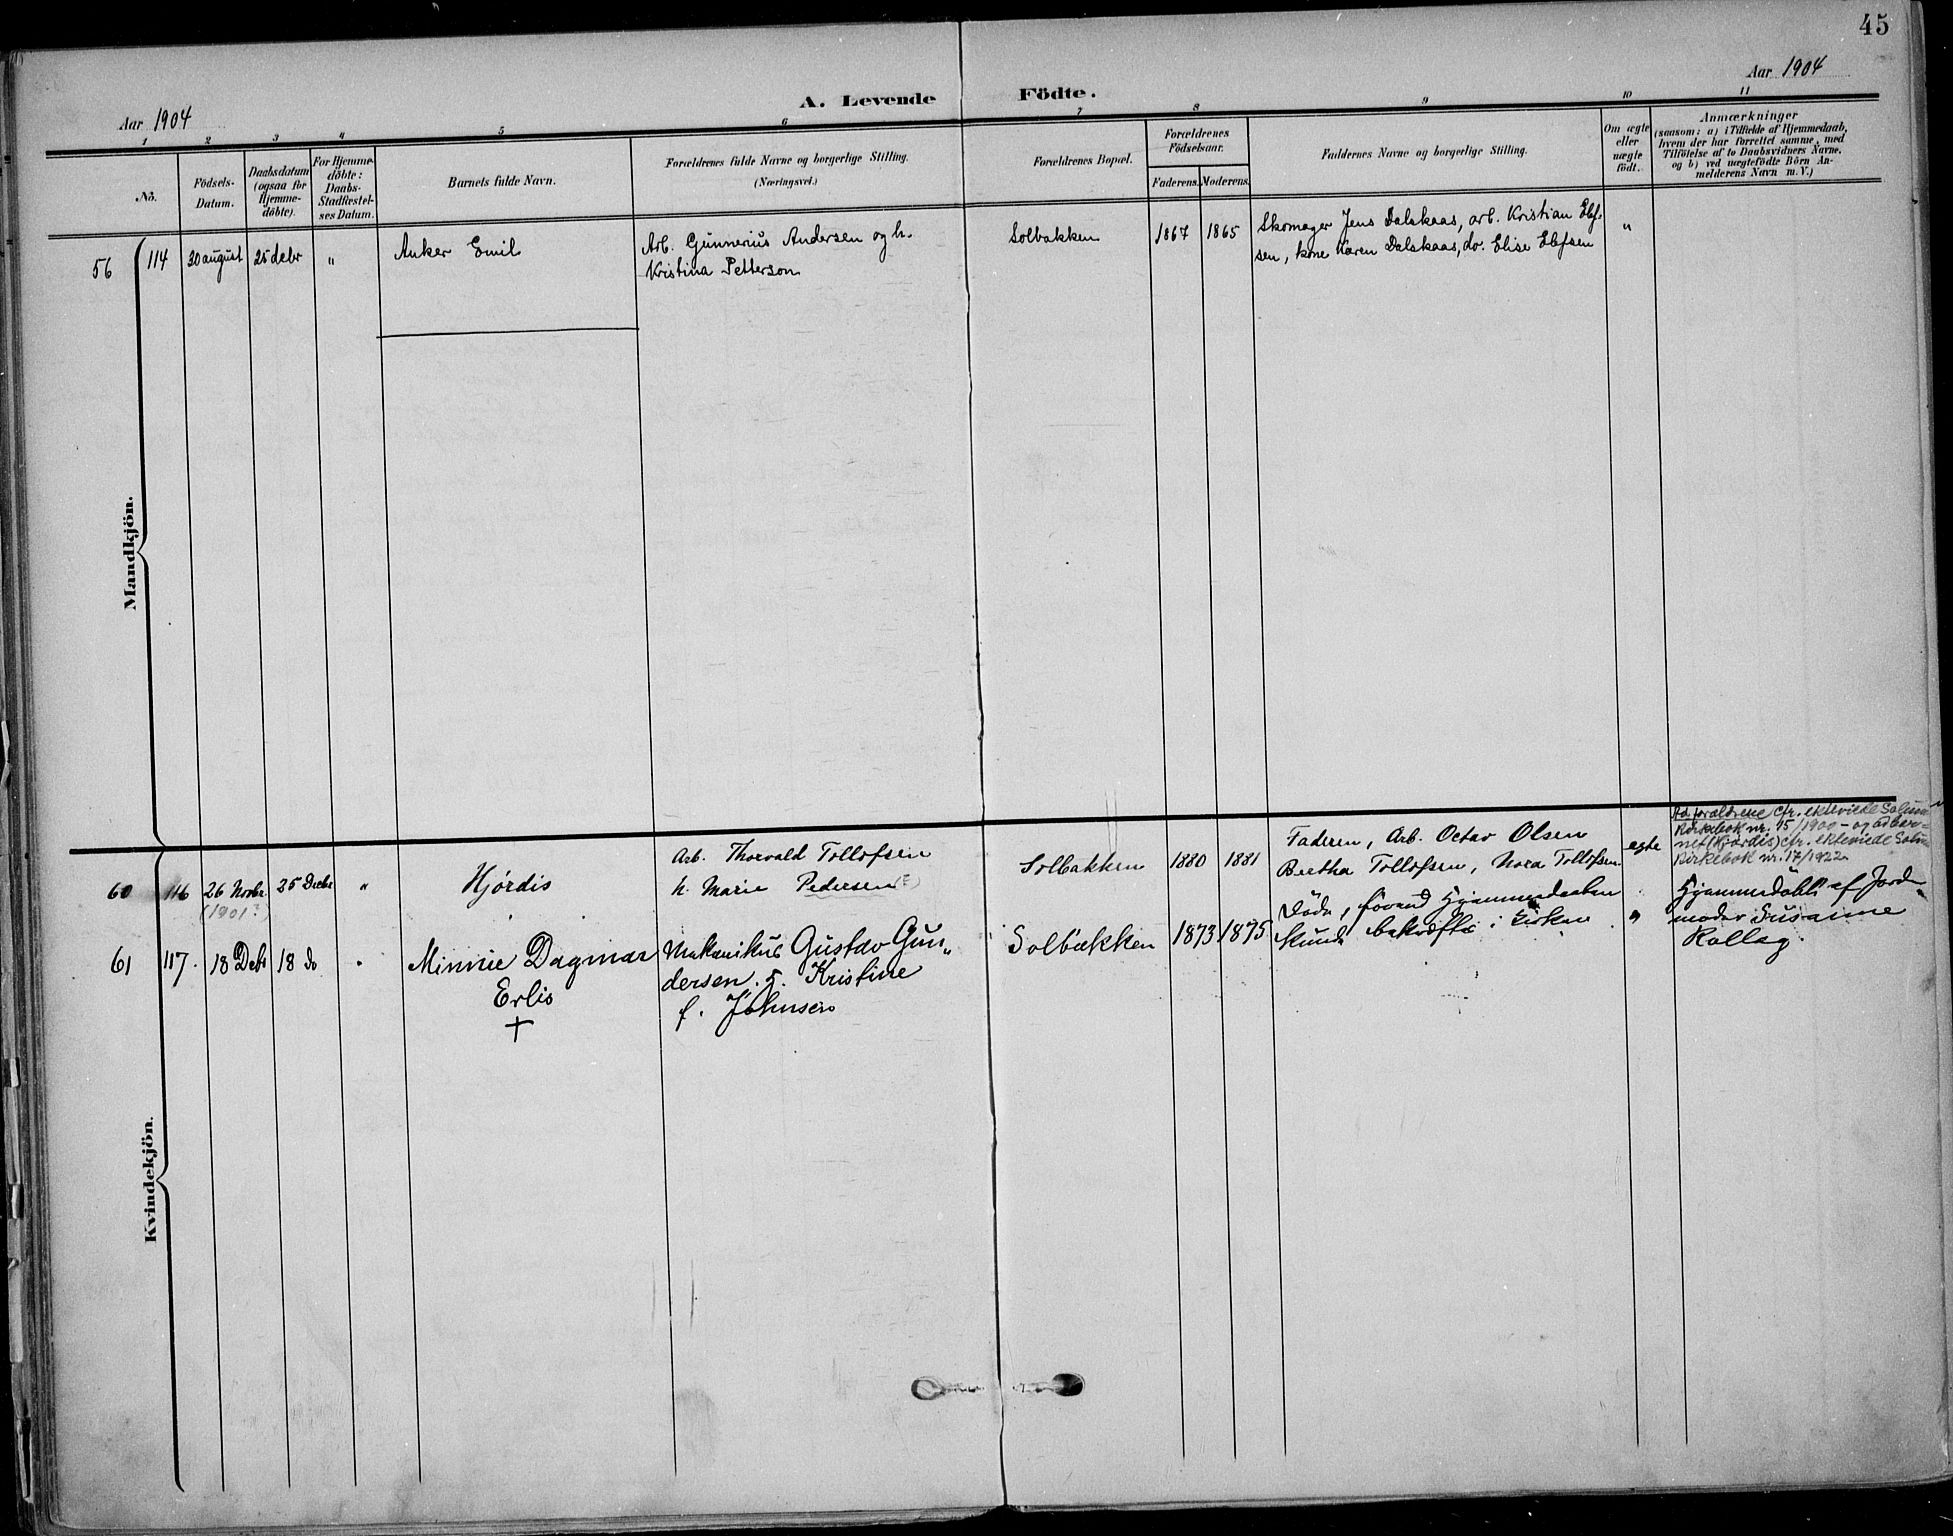 45
Aar 1904
A. Levende Födte.
Aar 1904
1 2 3 4 5 6 7 8 9 10 11
No.
Födsels-
Datum.
Daabsdatum
(ogsaa for
Hjemme-
döbte).
For Hjemme-
döbte:
Daabs-
Stadfæstel-
ses Datum.
Barnets fulde Navn.
Forældrenes fulde Navne og borgerlige Stilling.
(Næringsvei.)
Forældrenes Bopæl.
Forældrenes
Födselsaar.
Faderens. Moderens.
Faddernes Navne og borgerlige Stilling.
Om ægte
eller
uægte
födt.
Anmærkninger
(saasom: a) i Tilfælde af Hjemmedaab,
hvem der har forrettet samme, med
Tilföielse af to Daabsvidners Navne,
og b) ved uægtefödte Börn An-
melderens Navn m. V.)
Mandkjön.
56 114 30 august 25 debr " Anker Emil
Arb. Gunnerius Andersen og h.
Kristina Petterson
Solbakken 1867 1865
Skomager Jens Dalskaas, arb. Kristian Elef-
sen, kone Karen Dalskaas, do. Elise Elefsen
"
Kvindekjön.
60 116 26 Novbr 25 Decbr " Hjørdis
(1901?)
Arb. Thorvald Tollofsen
h. Marie Pedersen
Solbakken 1880 1881
Faderen, Arb. Octav Olsen
Bertha Tollofsen, Nora Tollofsen
egte
Ad foraldrene cfr. ekteviede Solum
Kirkebok nr. 15/1900 - og ad bar-
net (Hjördis) cfr. ekteviede Solum
Kirkebok nr. 17/1922
61 117. 18 Debr 18 do Minnie Dagmar
Erlis
+
Mekanikus Gustav Gun-
dersen. h. Kristine
f. Johnsen
Solbakken 1873 1875
Döde, forend Hjemmedaaben
kunde bekræftes i Kirken
"
Hjemmedöbt af Jorde-
moder Susanne
Rollag.